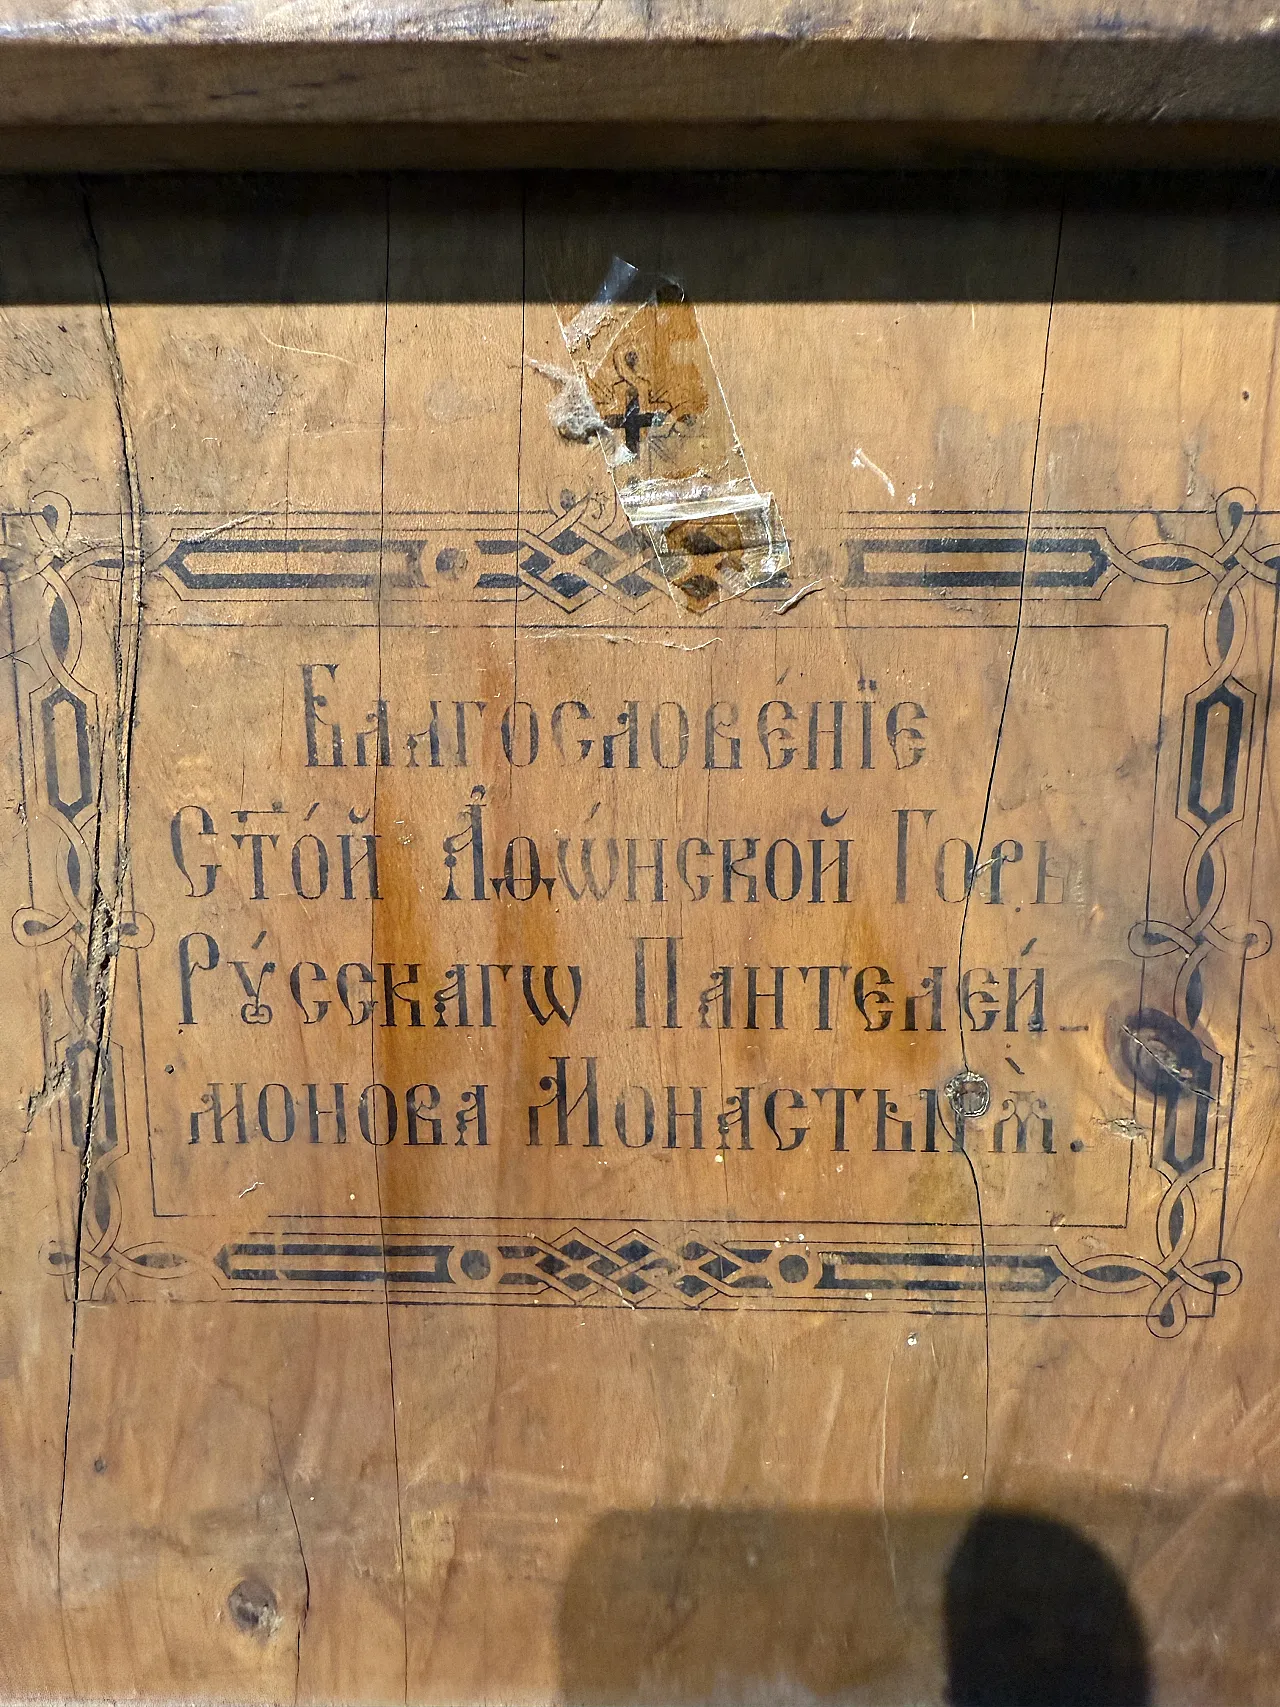 Благослове́нїе
Ст҃о́й Аѳѡ́нской Горы
Рꙋ́сскагѡ Пантелей-
монова Монастырѧ̀.